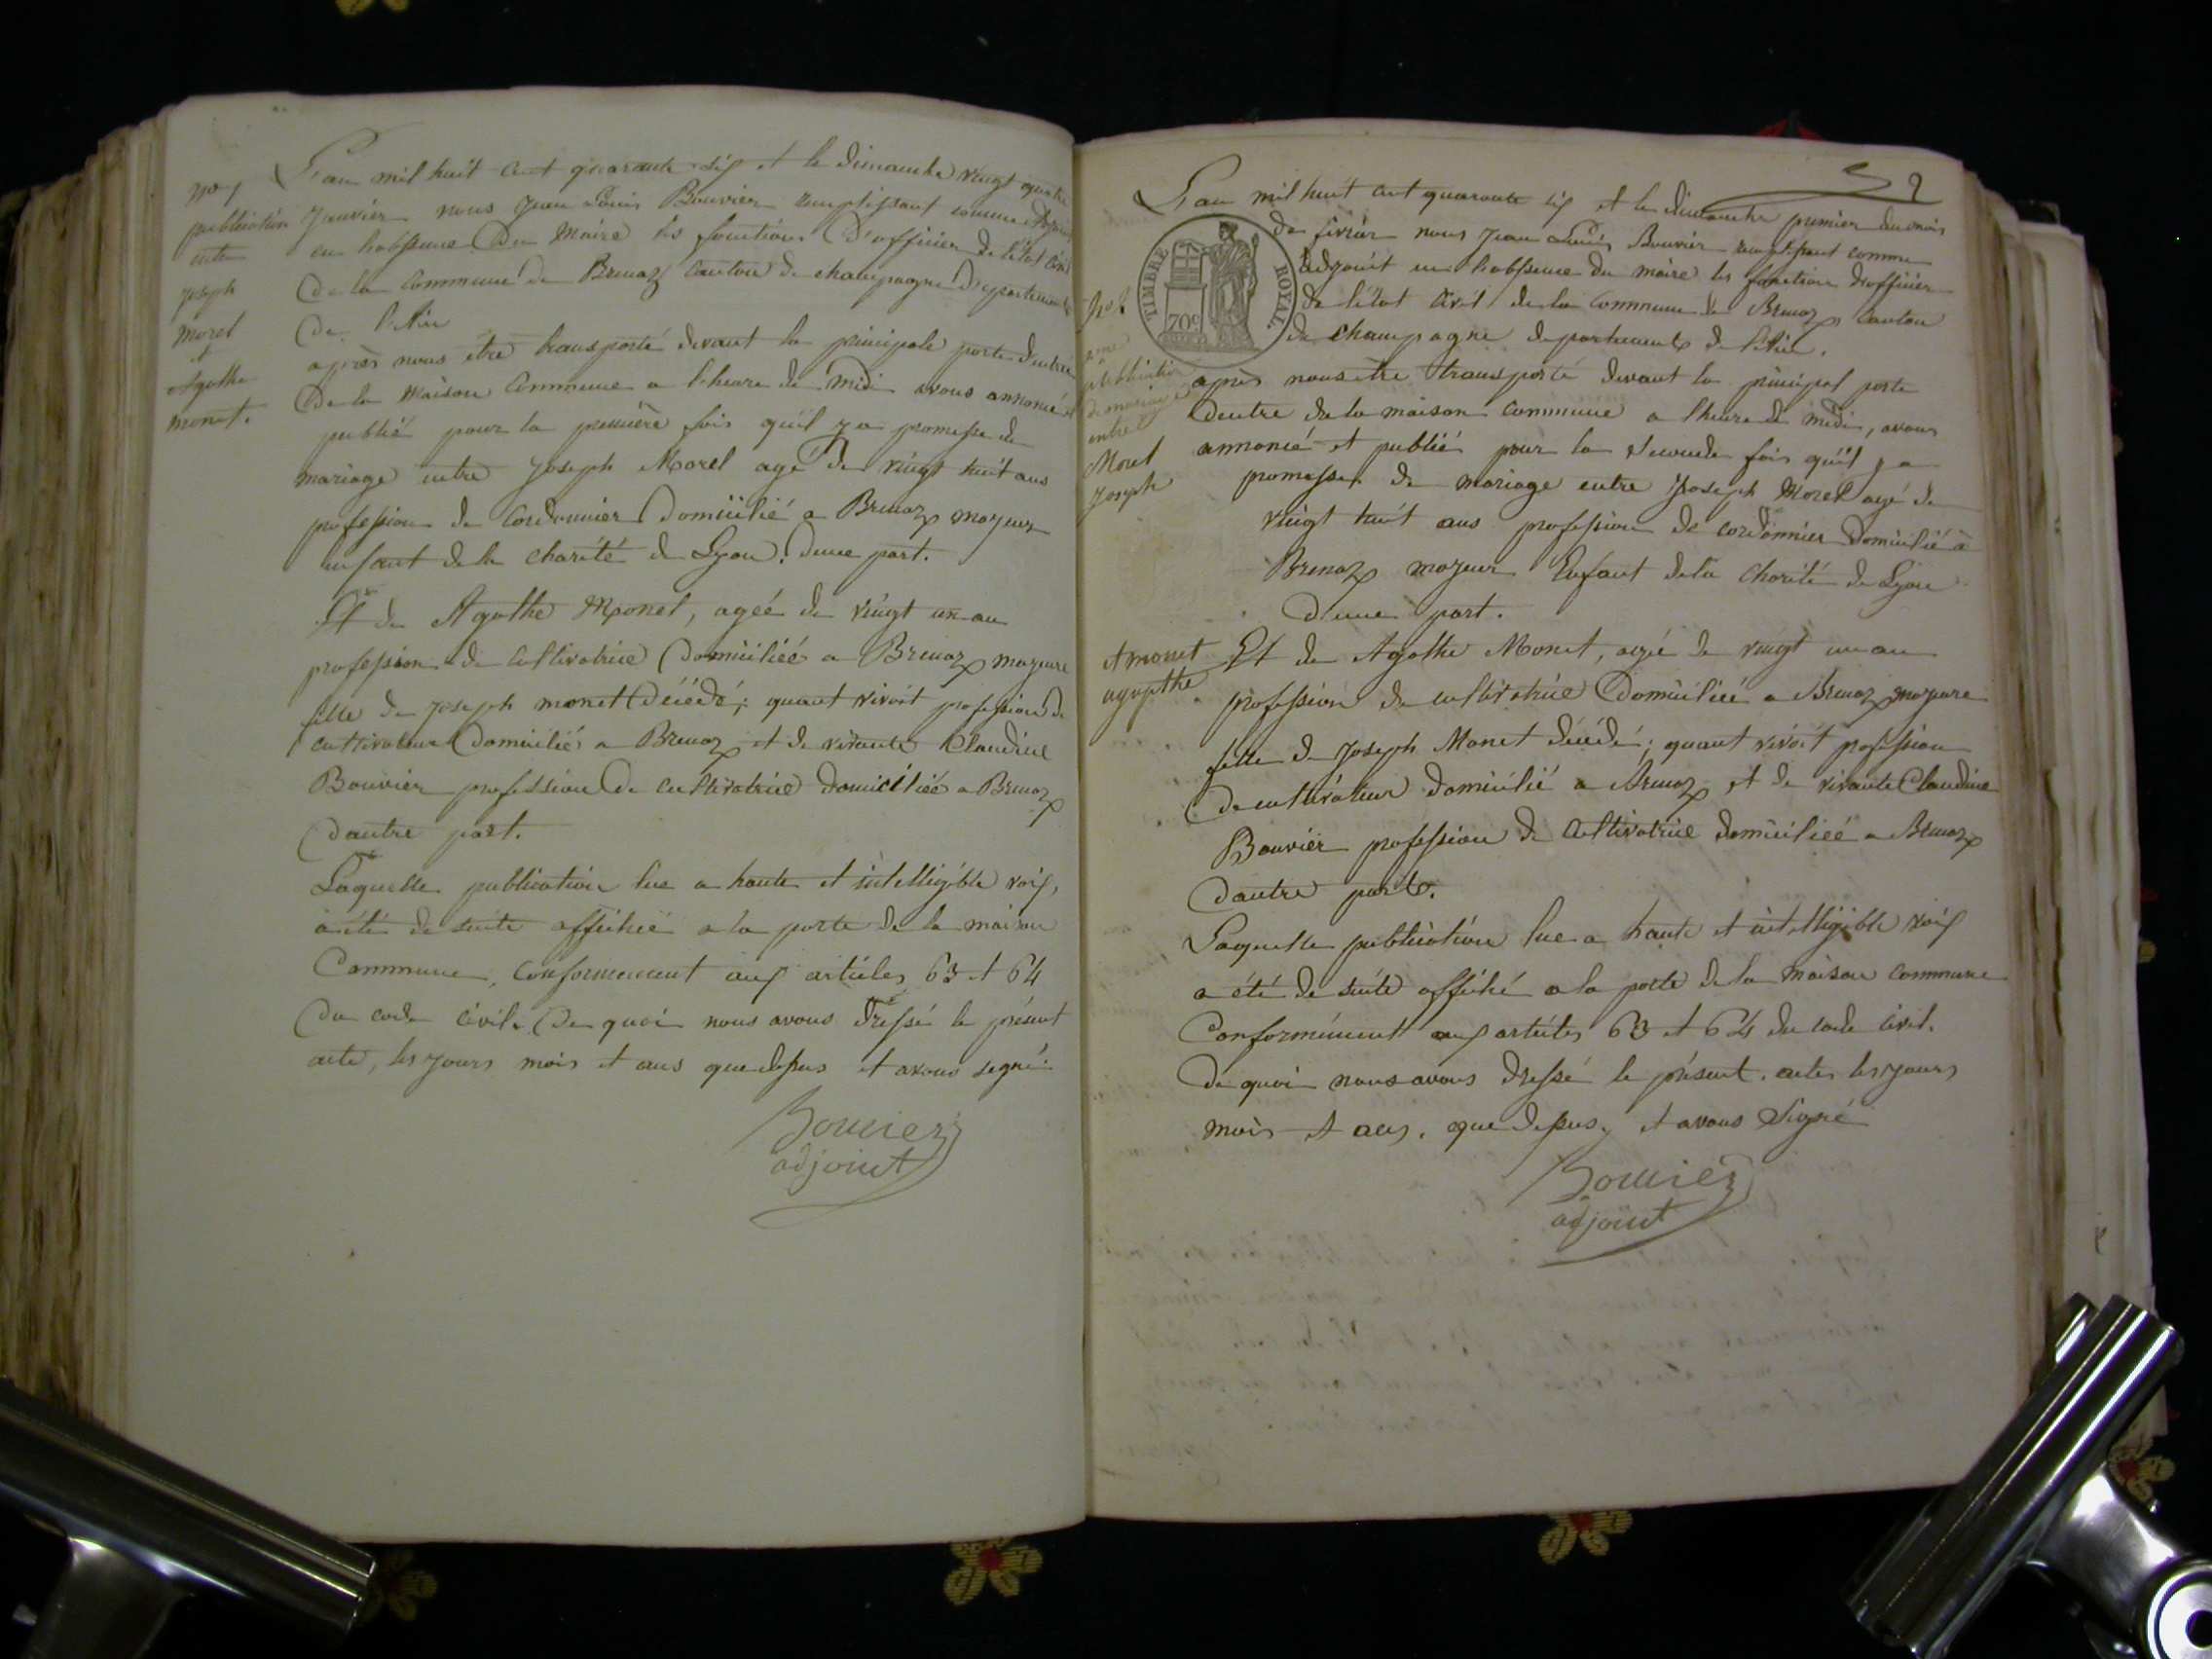 no 1
publication
entre
joseph
morel
et
Agathe
monet.
L'an mil huit cent quarante six et le dimanche vingt quatre
janvier nous jean Louis Bouvier remplissant comme adjoint
en l'absence du Maire les fonctions d'officier de l'état civil
de la Commune de Brenaz Canton de champagne département
de l'Ain
après nous être transporté devant la principale porte d'entrée
de la maison Commune a l'heure de midi avons annoncé et
publié pour la première fois qu'il y a promesse de
mariage entre Joseph Morel agé de vingt huit ans
profession de Cordonnier domicilié a Brenaz majeur
enfant de la charité de Lyon. dune part.
Et de Agathe Monet, agée de vingt un an
profession de Cultivatrice domiciliée a Brenaz majeure
fille de joseph monet décédé; quant vivoit profession de
cultivateur domicilié a Brenaz et de vivante Claudine
Bouvier profession de cultivatrice domiciliée a Brenaz
dautre part.
Laquelle publication lue a haute et intelligible voix,
a été de suite affichée a la porte de la maison
Commune, conformement aux articles 63 et 64
du code civil. De quoi nous avons dressé le présent
acte, les jours mois et ans que dessus et avons signé.
Bouvier
adjoint
2
TIMBRE ROYAL.
70c
no 2
2me
publication
de mariage
entre
Morel
joseph
et monet
agapthe
L'an mil huit cent quarante six et le dimanche premier du mois
de février nous jean Louis Bouvier remplissant comme
adjoint en l'absence du maire les fonction d'officier
de l'état civil de la Commune de Brenaz Canton
de champagne departement de l'Ain.
après nous être transporté devant la principal porte
dentre de la maison commune a lheure de midi, avons
annoncé et publié pour la seconde fois qu'il y a
promesse de mariage entre Joseph Morel agé de
vingt huit ans profession de cordonnier domicilié à
Brenaz majeur Enfant de la charité de Lyon
d'une part.
Et de Agathe Monet, agé de vingt un an
profession de cultivatrice domiciliée a Brenaz majeure
fille de Joseph Monet décédé; quant vivoit profession
de cultivateur domicilié a Brenaz et de vivante Claudine
Bouvier profession de Cultivatrice domiciliée a Brenaz
dautre parte.
Laquelle publication lue a haute et intelligible voix
a été de suite affiché a la porte de la maison commune
Conformément aux articles 63 et 64 du code civil.
De quoi nous avons dressé le présent. acte les jours
mois et ans. que dessus, et avons Signé
Bouvier
adjoint